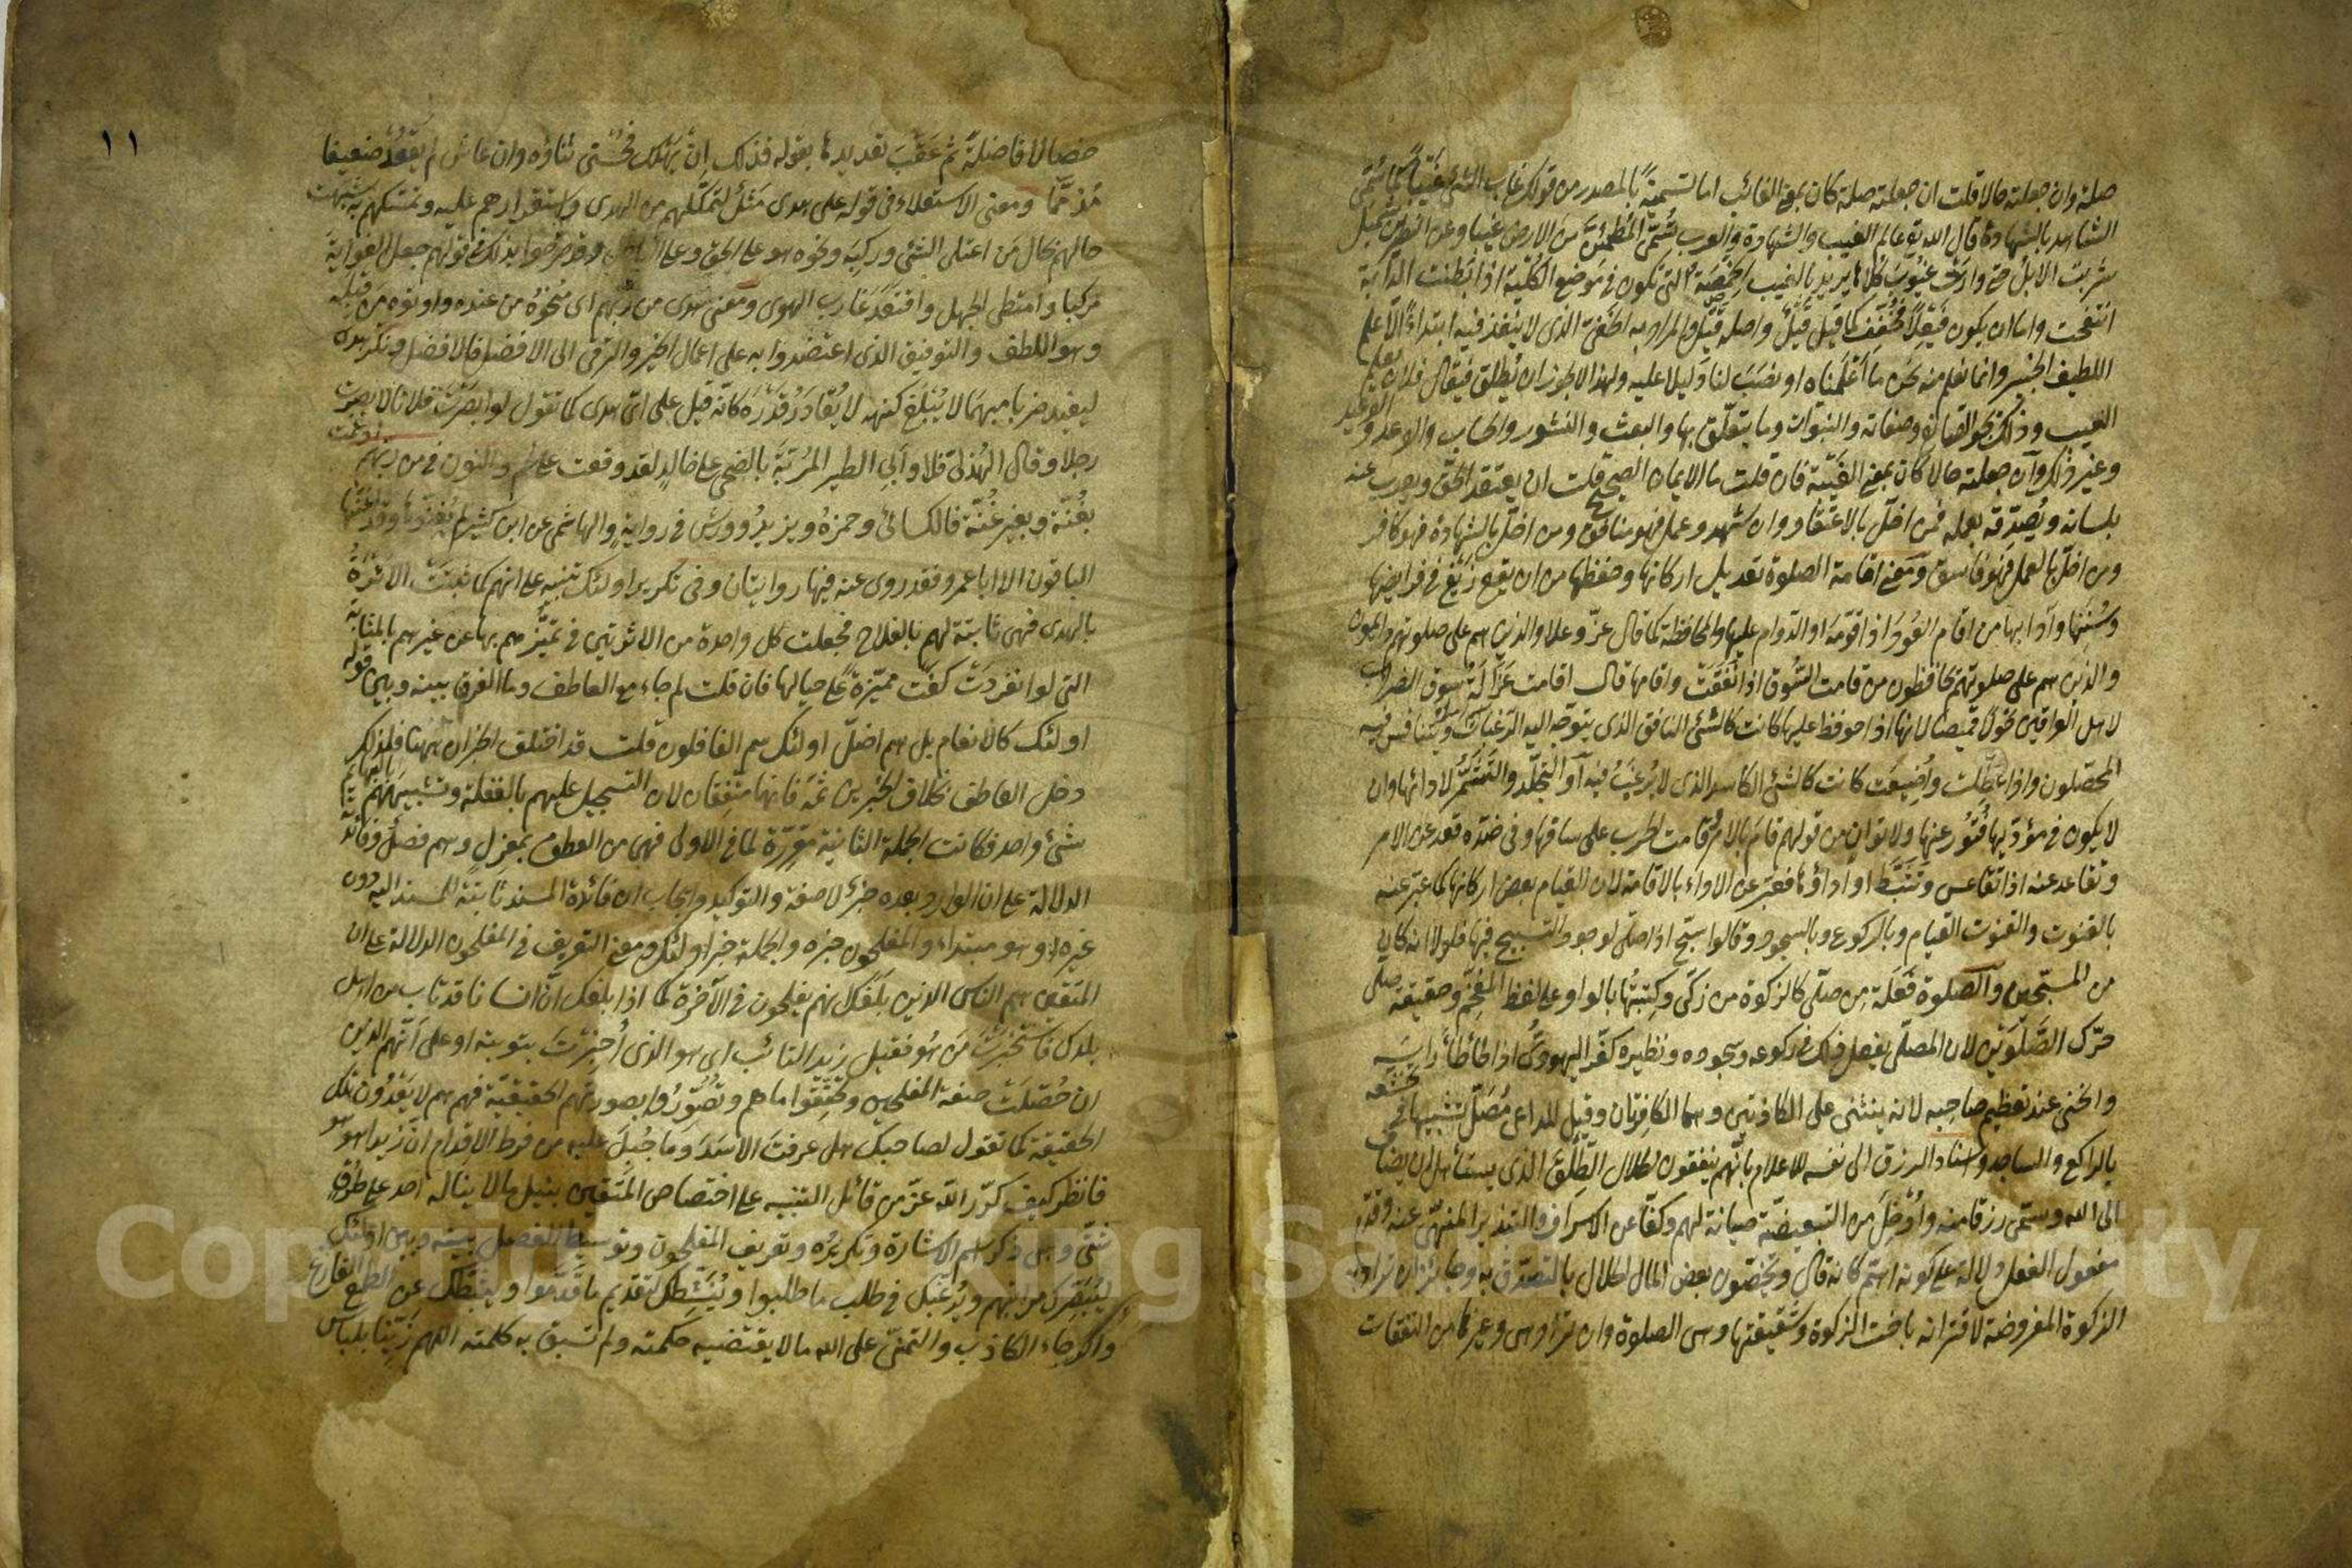 صلة وان جعلته حالا قلت ان جعلته صلة كان بمعنى الغائب اما تسمية بالمصدر من قولك غاب الشئ غيبا كما سُمّى
الشاهد بالشهادة قال الله تع عالم الغيب والشهادة والعرب تُسمّى المطمئنّ من الارض غيبا وعن النضر بن شميل
شربت الابل حتى وارت غيوب كُلاها يريد بالغيب الخَمْصَة التى تكون فى موضع الكُلية اذا بَطِنت الدابة
انتفخت واما ان يكون فَيْعِلًا فخُفّف كما قيل قَيْلٌ واصله قَيِّل والمراد به الخفىّ الذى لا ينفذ فيه ابتداءً الّا علم
اللطيف الخبير وانما نعلم منه نحن ما اَعْلَمناه او نصَبَ لنا دليلا عليه ولهذا لا يجوز ان يُطلق فيُقال فلان يعلم
الغيب وذلك نحو الصانع وصفاته والنبوّات وما يتعلّق بها والبعث والنشور والحساب والوعد والوعيد
وغير ذلك وان جعلته حالا كان بمعنى الغَيْبة فان قلت ما الايمان الصحيح قلت ان يعتقد الحقّ ويعرب عنه
بلسانه ويُصدّقه بعمله فمن اخلّ بالاعتقاد وان شهد وعمل فهو منافق ومن اخلّ بالشهادة فهو كافر
ومن اخلّ بالعمل فهو فاسق ومعنى اقامة الصلوة تعديل اركانها وحفظها من ان يقع زَيْغ فى فرايضها
وسُنَنها وآدابها من اقام العُود اذا قوّمه او الدوام عليها والمحافظة كما قال عزّ وعلا والذين هم على صلوتهم دائمون
والذين هم على صلوتهم يحافظون من قامت السُّوق اذا نَفَقَت واقامها قال اقامت غزالة سوق الضراب
لاهل العراقين حولًا قميصا لانها اذا حوفظ عليها كانت كالشئ النافق الذى يتوجّه اليه الرَّغبات ويتنافس فيه
المحصّلون واذا عُطّلت واُضيعت كانت كالشئ الكاسد الذى لا يُرغَبُ فيه او التجلّد والتشمّر لادائها وان
لا يكون فى مؤدّيها فُتُور عنها ولا توانٍ من قولهم قام بالامر وقامت الحرب على ساقها وفى ضدّه قعد عن الامر
وتقاعد عنه اذا تقاعس وتثبّط او اداؤها فعبّر عن الاداء بالاقامة لان القيام بعض اركانها كما عبّر عنه
بالقنوت والقنوت القيام وبالركوع وبالسجود وقالوا سبّح اذا صلّى لوجود التسبيح فيها فلولا انه كان
من المسبّحين والصلوة فَعَلَة من صلّى كالزكوة من زكّى وكِتبتُها بالواو على لفظ المفخّم وحقيقة صلّى
حرّك الصَّلَوَين لان المصلّى يفعل ذلك فى ركوعه وسجوده ونظيره كفّر اليهودىّ اذا طأطأ راسه
وانحنى عند تعظيم صاحبه لانه ينثنى على الكاذتين وهما الكافرتان وقيل للداعى مُصَلٍّ تشبيها فى تخشّعه
بالراكع والساجد واسناد الرزق الى نفسه للاعلام بانّهم ينفقون الحلال الطِّلْق الذى يستأهل ان يضاف
الى الله ويسمّى رزقا منه واَدْخَلَ من التبعيضيّة صيانة لهم وكفّا عن الاسراف والتبذير المنهىّ عنه وقدّم
مفعول الفعل دلالة على كونه اهمّ كانه قال ويخصّون بعض المال الحلال بالتصدّق به وجائز ان يراد به
الزكوة المفروضة لاقترانه باخت الزكوة وشقيقتها وهى الصلوة وان تراد هى وغيرها من النفقات
١١
خصالا فاضلة ثم عَقّبَ تعديدها بقوله فذلك اِنْ يَهلك فحُسْنى ثناؤه وان عاش لم يَقْعُد ضعيفا
مُذمَّما ومعنى الاستعلاء فى قوله على هدى مَثَل لتمكّنهم من الهدى واستقرارهم عليه وتمسّكهم به شُبّهت
حالهم بحال من اعتلى الشئ وركِبَه ونحوه هو على الحق وعلى الباطل وقد صرّحوا بذلك فى قولهم جعل الغواية
مركبا وامتطى الجهل واقتعد غارب الهوى ومعنى هدى من ربّهم اى مُنِحُوه من عنده واوتوه من قِبَلِه
وهو اللطف والتوفيق الذى اعتضدوا به على اعمال الخير والترقّى الى الافضل فالافضل ونكّر هدى
ليفيد ضربا مبهما لا يُبْلَغ كنهه لا يُقادَر قَدْرُه كانّه قيل على اىّ هدى كما تقول لو ابصرْتَ فلانا لابصرت
رجلا وقال الهُذلىّ فلا وأبى الطير المُرِبّة بالضحى على خالدٍ لقد وقعت على لحم والنون فى من ربهم ادغمت
بغُنّة وبغير غُنّة فالكسائىّ وحمزة ويزيد وورش فى رواية والهاشمى عن ابن كثير لم يُغِنّوها وقد اغنّها
الباقون الا ابا عمرو فقد روى عنه فيها روايتان وفى تكرير اولئك تنبيه على انهم كما ثبتَتْ لهم الاَثَرةُ
بالهدى فهى ثابتة لهم بالفلاح فجعلت كل واحدة من الاثرتين فى تميّزهم بها عن غيرهم بالمثابة
التى لو انفردَتْ كفت مميّزة على حيالها فان قلت لم جاء مع العاطف وما الفرق بينه وبين قوله
اولئك كالانعام بل هم اضلّ اولئك هم الغافلون قلت قد اختلف الخبران ههنا فلذلك
دخل العاطف بخلاف الخبرين ثمّة فانهما متّفقان لان التسجيل عليهم بالغفلة وتشبيههم بالبهائم
شئ واحد فكانت الجملة الثانية مقرّرة لما فى الاولى فهى من العطف بمعزل وهم فصلٌ وفائدته
الدلالة على ان الوارد بعده خبرٌ لا صفة والتوكيد وايجاب ان فائدة المسند ثابتة للمسند اليه دون
غيره او هو مبتداء والمفلحون خبره والجملة خبر اولئك ومعنى التعريف فى المفلحون الدلالة على ان
المتقين هم الناس الذين بلّغك انهم يفلحون فى الآخرة كما اذا بلغك انّ انسانا قد تاب من اهل
بلدك فاستخبرْتَ مَن هُو فقيل زيد التائب اى هو الذى اُخبِرْتَ بتوبته او على انّهم الذين
ان حُصّلَتْ صفة المفلحين وتحقّقوا ما هم وتُصُوِّرُوا بصورتهم الحقيقيّة فهم هم لا يَعْدُون تلك
الحقيقة كما تقول لصاحبك هل عرفت الاسَدَ وما جُبِلَ عليه من فرط الاقدام انّ زيدا هو هو
فانظر كيف كرّر الله عزّ من قائل التنبيه على اختصاص المتّقين بنيل ما لا يناله احد على طُرُقٍ
شتّى وهى ذكر اسم الاشارة وتكريره وتعريف المفلحون وتوسيط الفصل بينه وبين اولئك
ليُبَصّرك مراتبهم ويُرغّبك فى طلب ما طلبوا ويُنَشِّطك لتقديم ما قدّموا ويثبّطك عن الطمع الفارغ
والرجاء الكاذب والتمنّى على الله ما لا يقتضيه حكمته ولم تسبق به كلمته اللهم زَيِّنّا بلباس